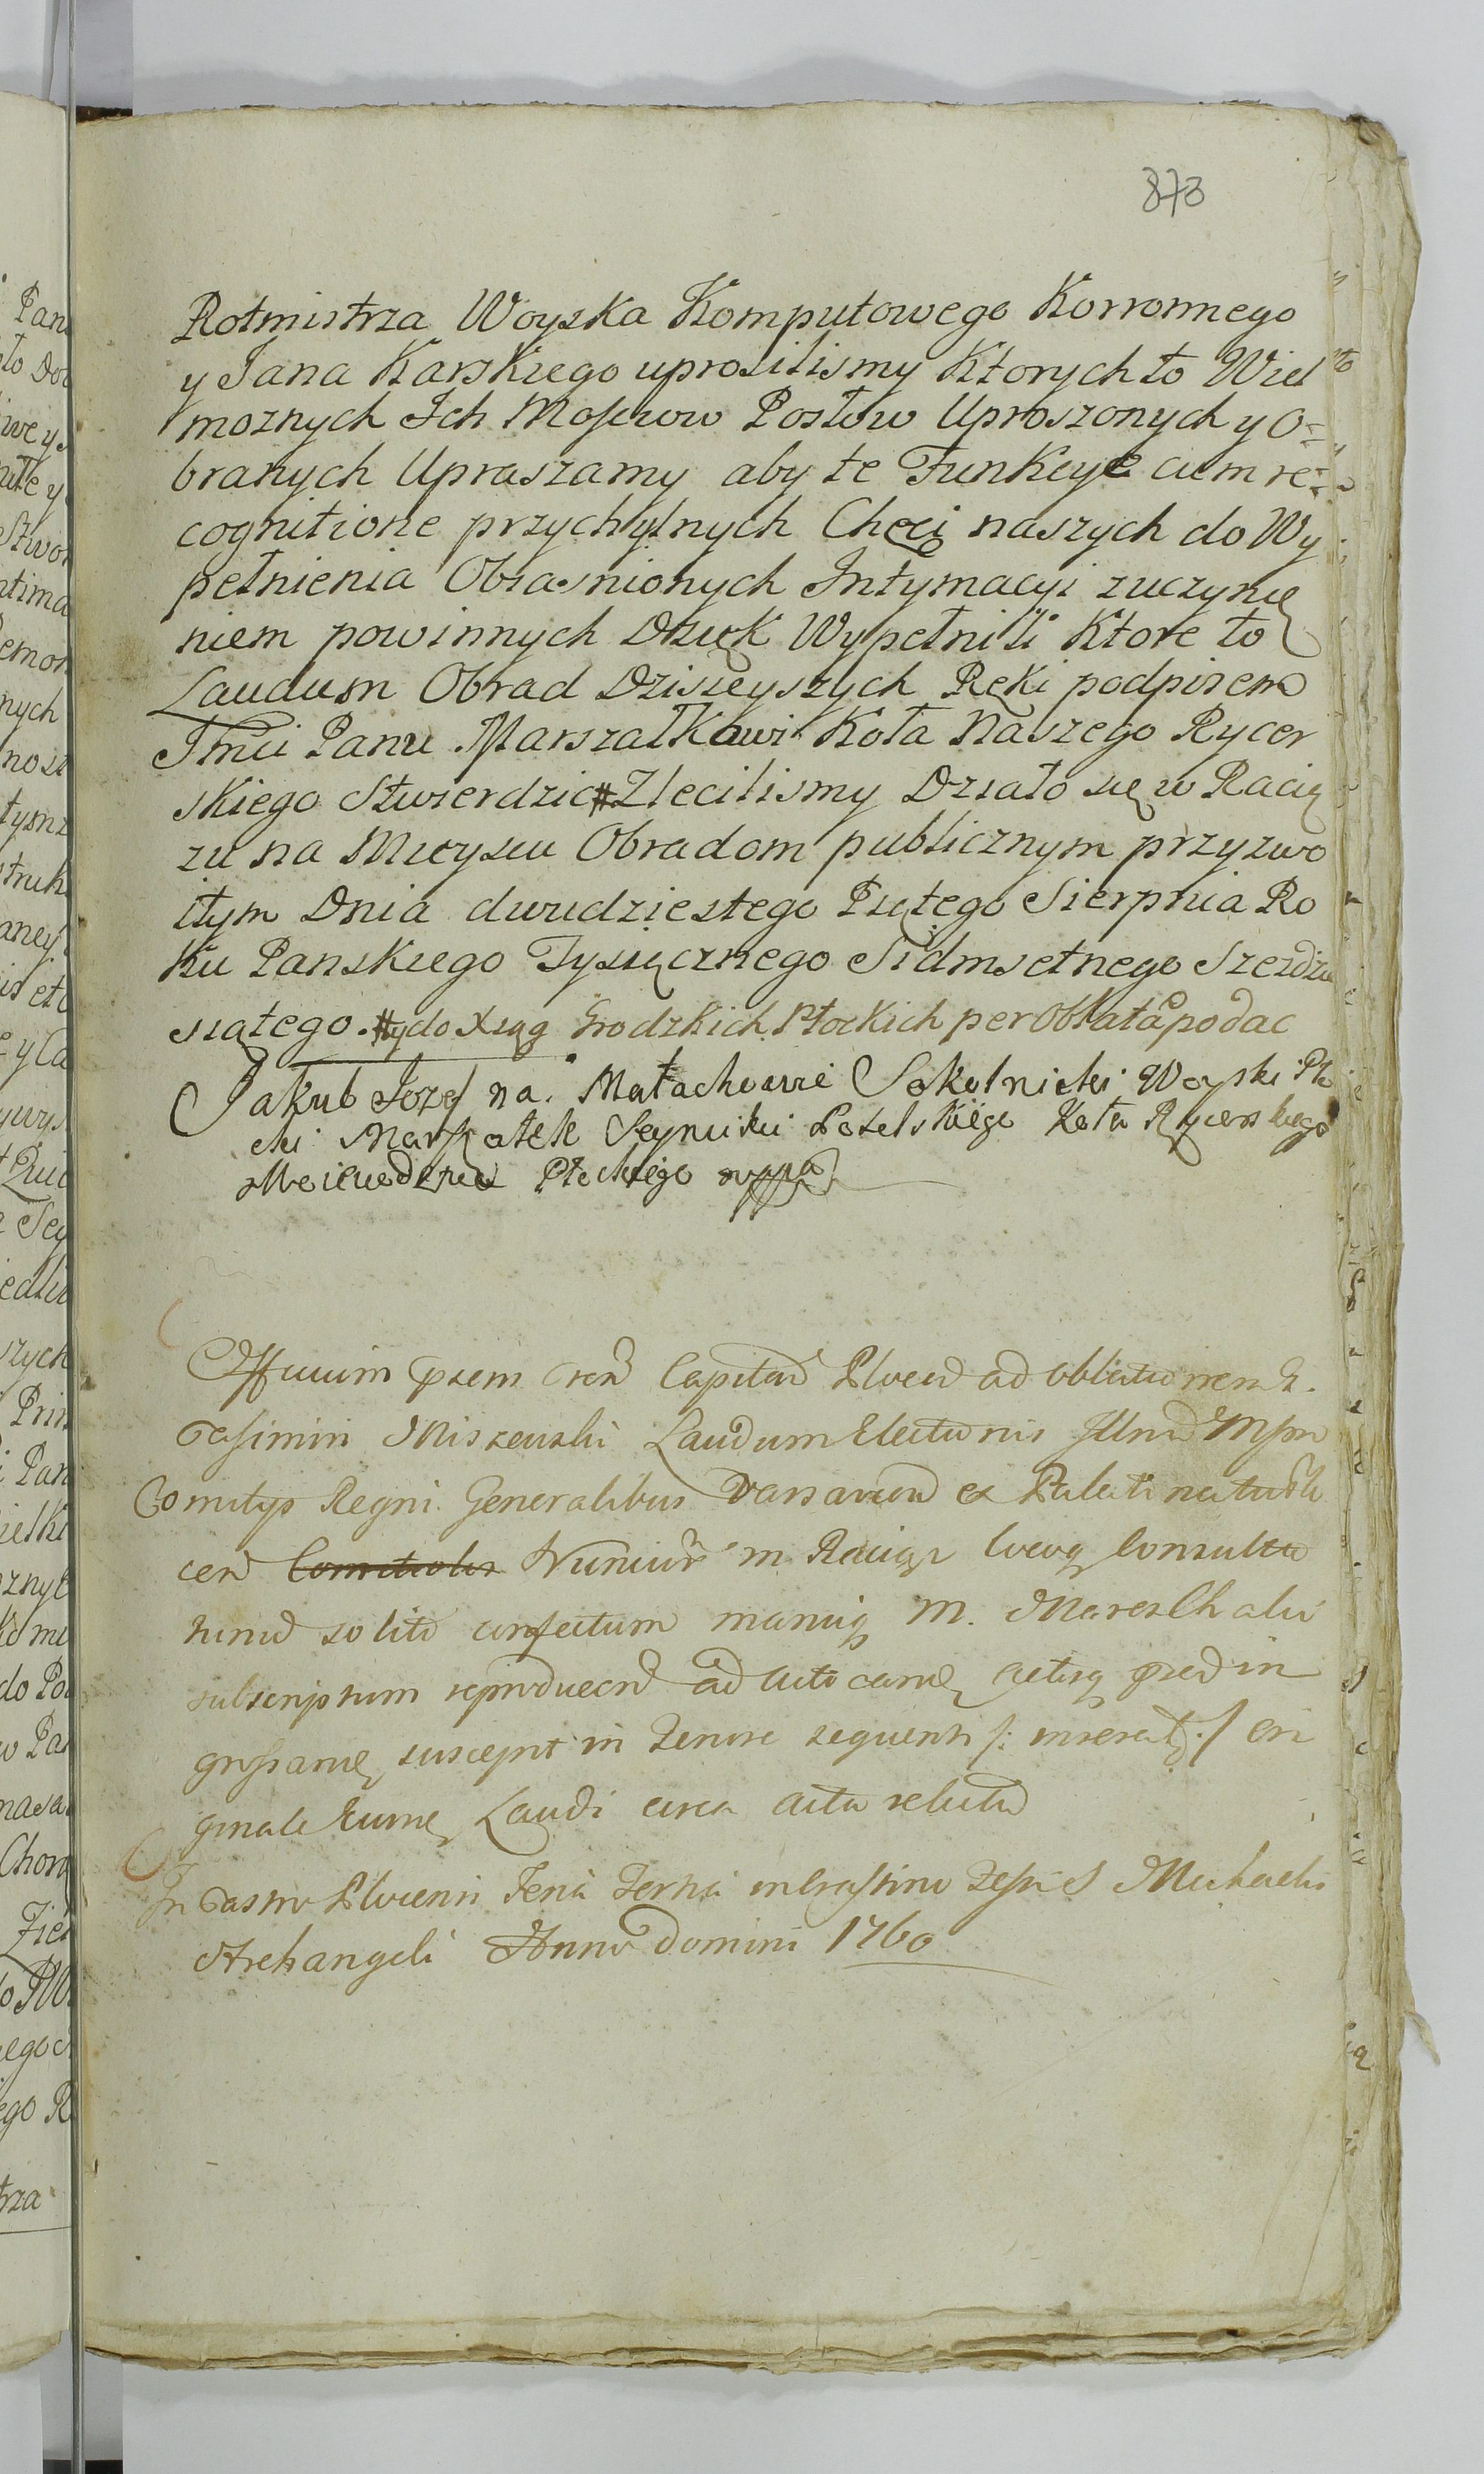 873
Rotmistrza Woyska Komputowego Korronnego
y Jana Karskiego uprosilismy Ktorych to Wiel
moznych Ich Mosciow Posłow Uproszonych y O=
branych Upraszamy aby te Funkcye cum re=
cognitione przychylnych Chęci naszych do Wy
pełnienia Obiasnionych Intymacyi zuczynię
niem powinnych Dzięk Wypełnili Ktore to
Laudum Obrad Dzisieyszych Ręki podpisem
Jmci Panu Marszałkowi Koła Naszego Rycer
skiego Stwierdzic # Zlecilismy Działo się w Racią
zu na Mieyscu Obradom publicznym przyzwo
itym Dnia dwudziestego Piątego Sierpnia Ro
ku Panskiego Tysiącznego Sidmsetnego Szezdzie
siątego. # y do Xsiąg Grodzkich Płockich per Oblatã podac
Jakub Jozef na Małachowie Sokolnicki Woyski Pło
cki Marszałek Seymiku Poselskiego Koła Rycerskiego
Woiewodztwa Płockiego mppa
Officium psens Capitan Plocen ad oblationem G.
Casimiri Miszewski Laudum Electionis
Comitys Regni Generalibus Varsavien ex Palatinatu Plo
cen Comitialis Nuncior in Raciąz locoq Consulta
tionu solito confectum manuq M. Mareschalci
subscriptum reproducen ad acticand actisq psed in
grossand suscepit in Tenore sequenti /: inserat :/ ori
ginale Laudi circa acta relicto
In Castro Plocensi Feria Tertia in Crastino Festi S Michaelis
Archangeli Anno Domini 1760